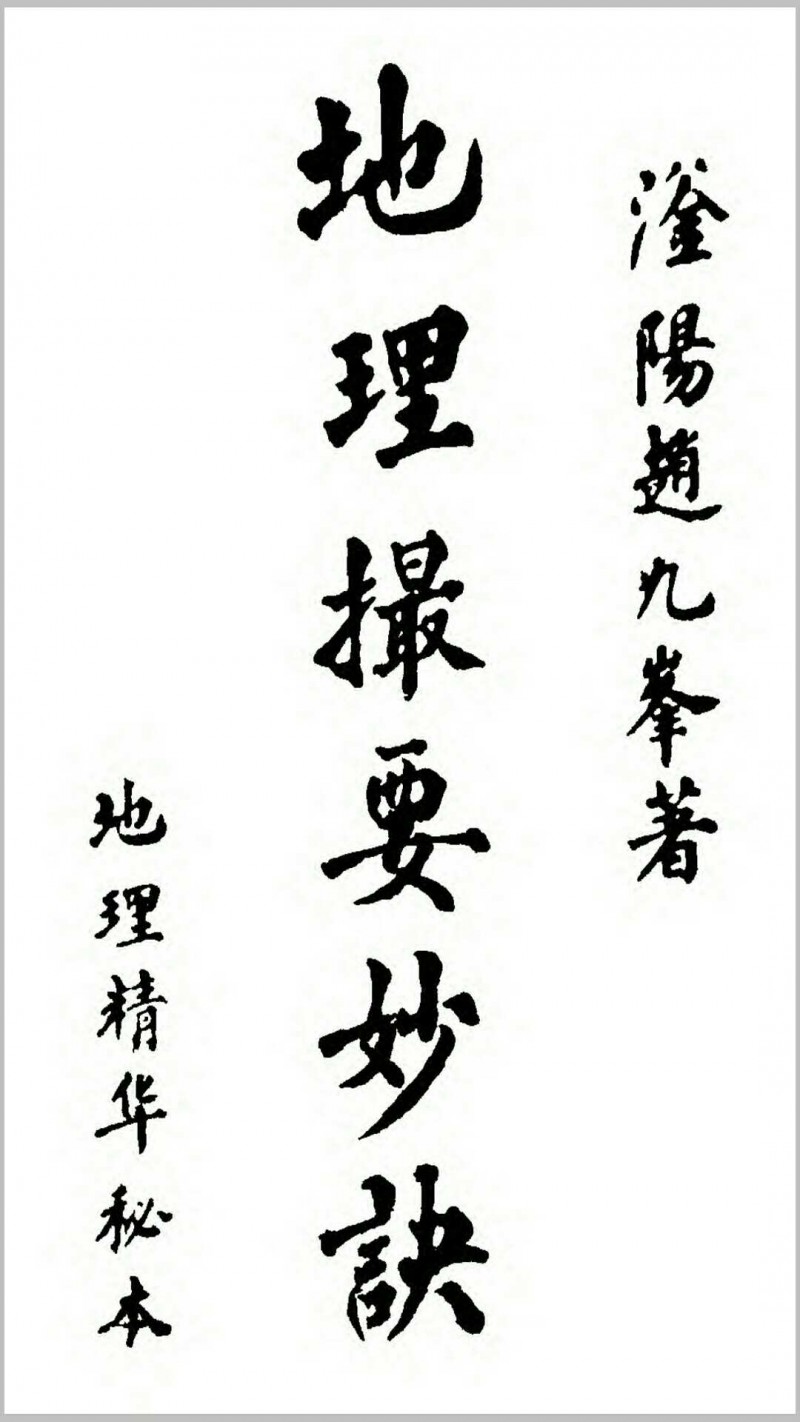 滏陽趙九峯著
地理撮要妙訣
地理精华秘本